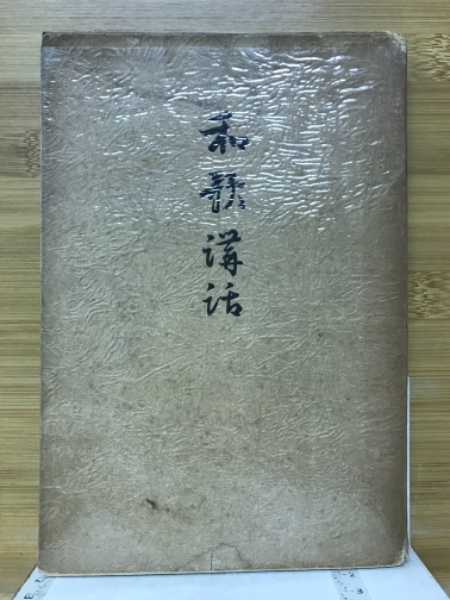 和歌講話